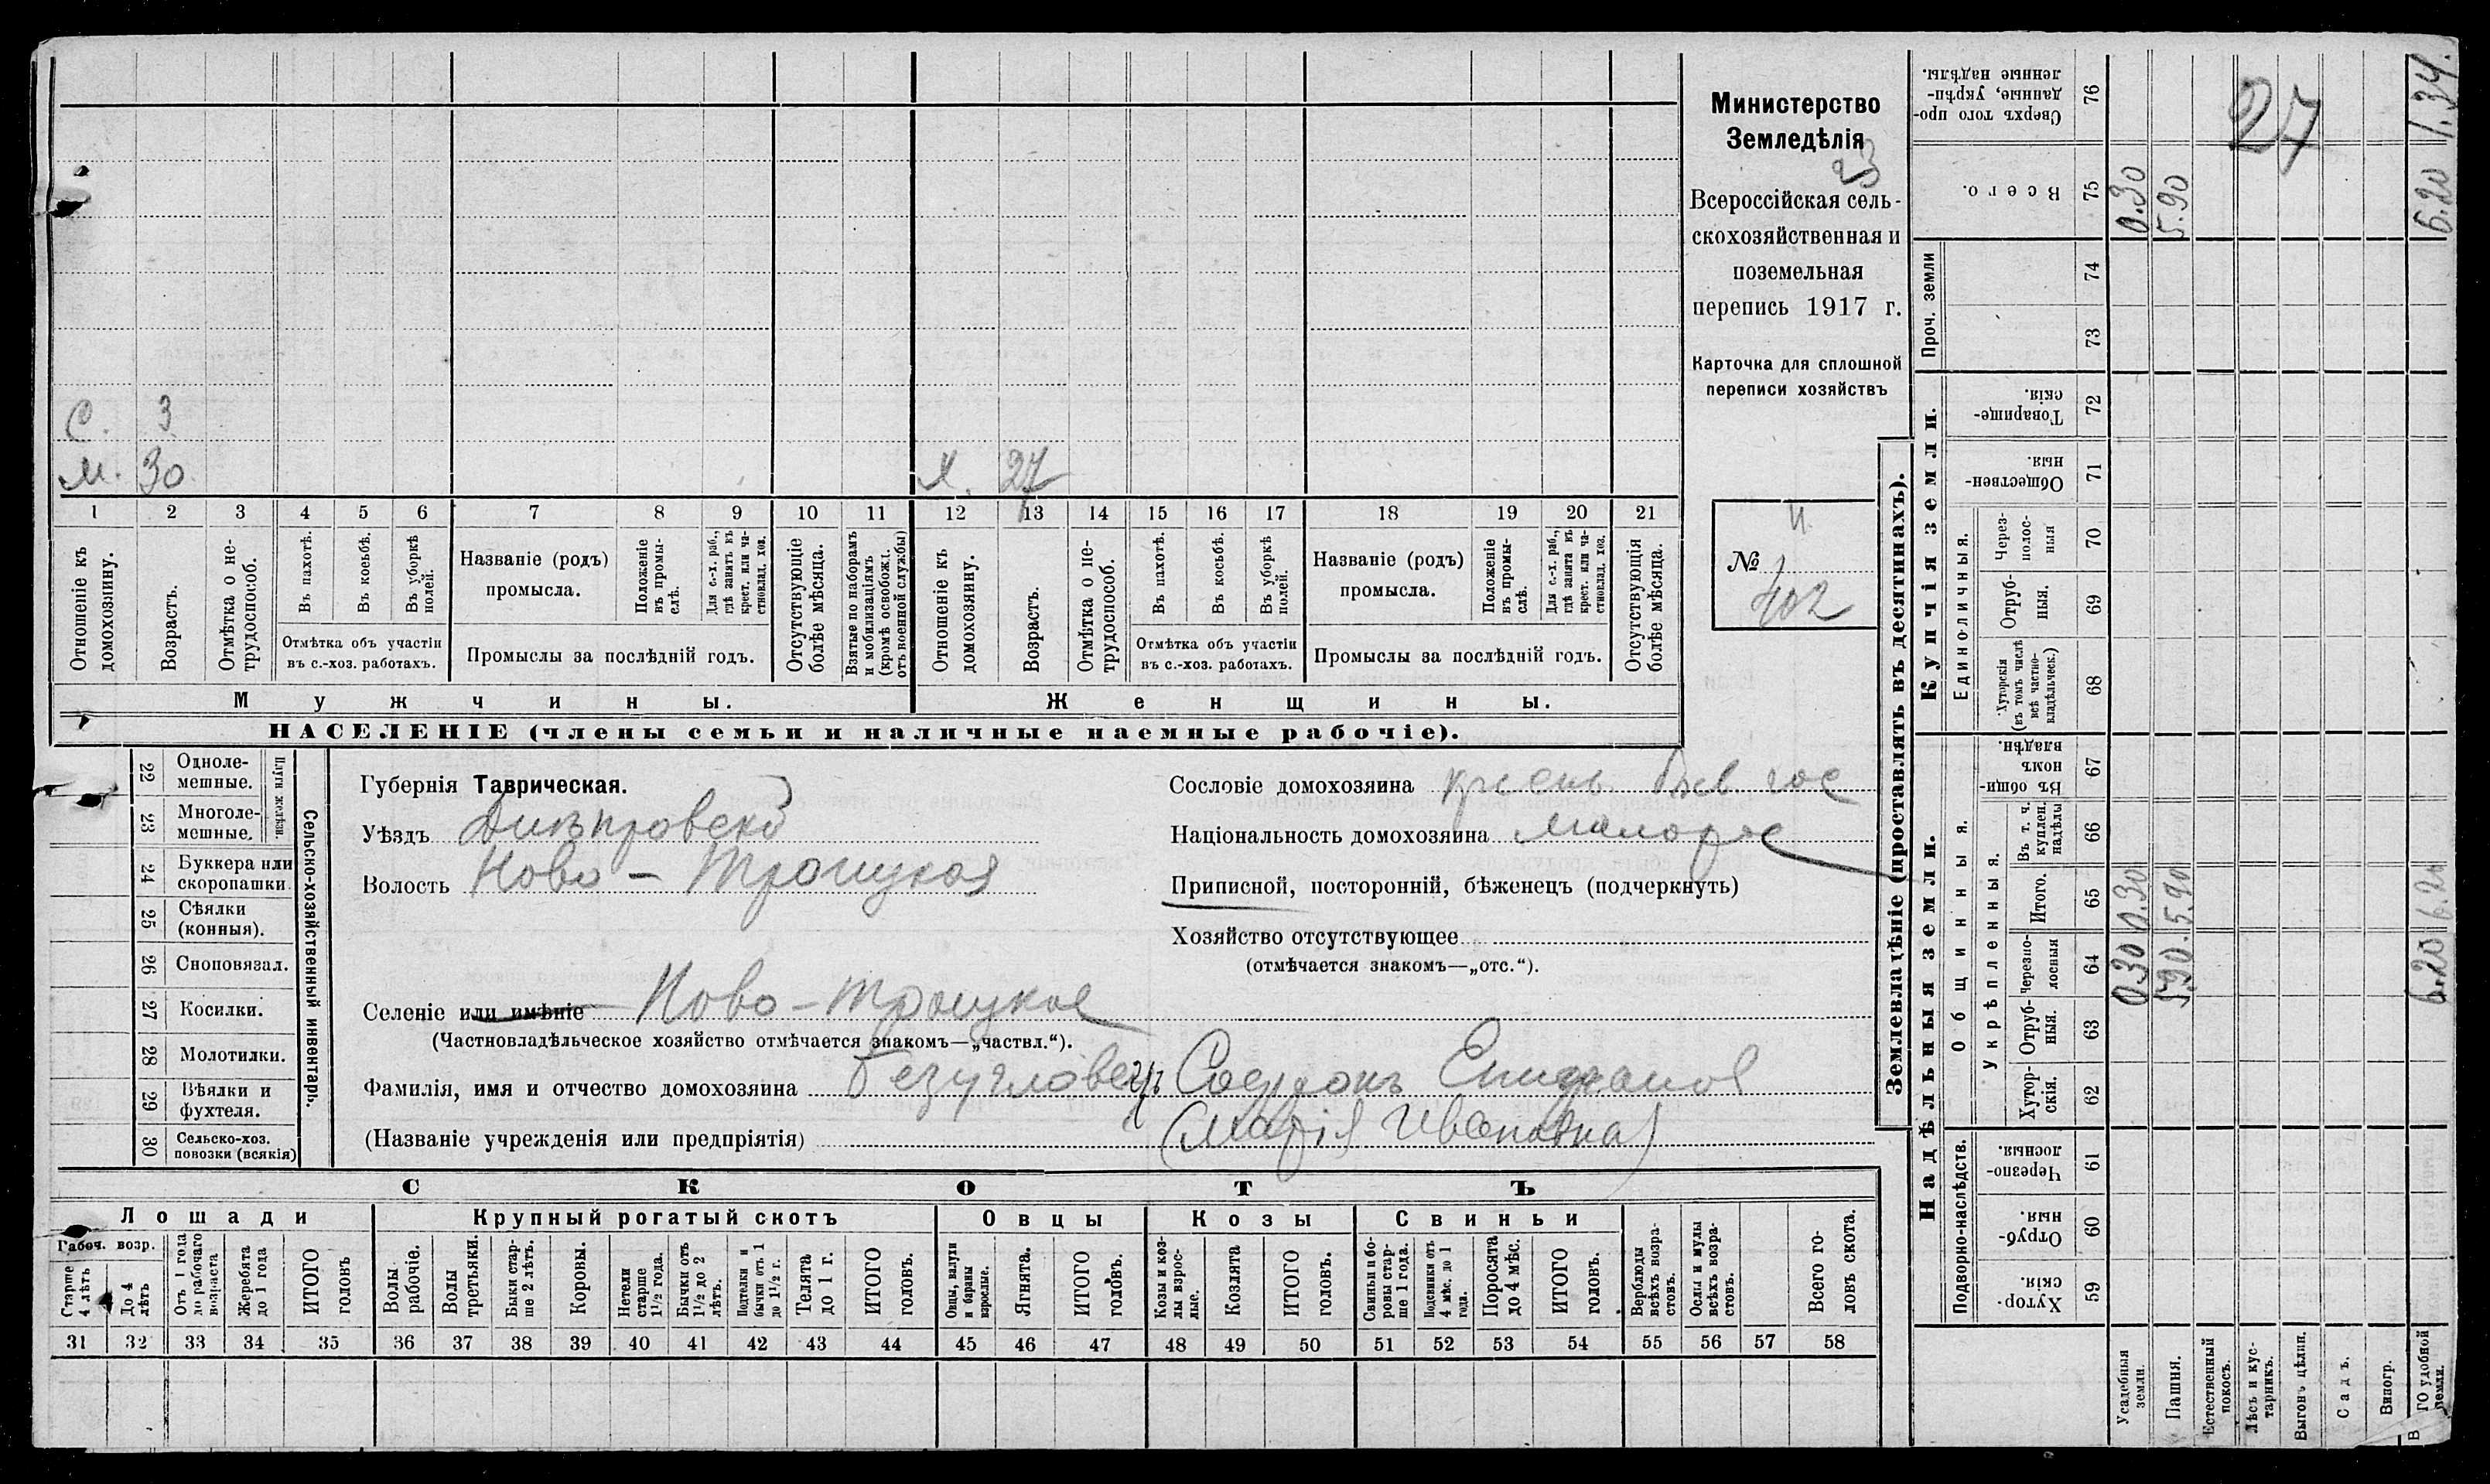 С. 3
м. 30
х. 27
1 2 3 4 5 6 7 8 9 10 11 12 13 14 15 16 17 18 19 20 21
Отношеніе къ домохозяину.
Возрастъ.
Отмѣтка о не-трудоспособ.
Въ пахотѣ.
Въ косьбѣ.
Въ уборкѣ полей.
Отмѣтка объ участіи
въ с.-хоз. работахъ.
Названіе (родъ)
промысла.
Положеніе въ промы-слѣ.
Для с.-х. раб., гдѣ занятъ въ крест. или ча-стновлад. хоз.
Промыслы за послѣдній годъ.
Отсутствующіе болѣе мѣсяца.
Взятые по наборамъ и мобилизаціямъ (кромѣ освобожд. отъ военной службы)
Отношеніе къ домохозяину.
Возрастъ.
Отмѣтка о не-трудоспособ.
Въ пахотѣ.
Въ косьбѣ.
Въ уборкѣ полей.
Отмѣтка объ участіи
въ с.-хоз. работахъ.
Названіе (родъ)
промысла.
Положеніе въ промы-слѣ.
Для с.-х. раб., гдѣ занята въ крест. или ча-стновлад. хоз.
Промыслы за послѣдній годъ.
Отсутствующія болѣе мѣсяца.
Мужчины.
Женщины.
НАСЕЛЕНІЕ (члены семьи и наличные наемные рабочіе).
Министерство
Земледѣлія
23
Всероссійская сель-
скохозяйственная и
поземельная
перепись 1917 г.
Карточка для сплошной
переписи хозяйствъ
№
402
22 Одноле-мешные.
23 Многоле-мешные.
Плуги желѣзн.
24 Буккера или скоропашки
25 Сѣялки (конныя).
26 Сноповязал.
27 Косилки.
28 Молотилки.
29 Вѣялки и фухтеля.
30 Сельско-хоз. повозки (всякія)
Сельско-хозяйственный инвентарь.
Губернія Таврическая.
Уѣздъ Днѣпровскій
Волость Ново-Троицкая
Селеніе или имѣніе Ново-Троицкое
(Частновладѣльческое хозяйство отмѣчается знакомъ—„частвл.“).
Фамилія, имя и отчество домохозяина Безугловецъ Софронъ Епифанов
(Названіе учрежденія или предпріятія) (Марія Ивановна)
Сословіе домохозяина
Національность домохозяина малорос
Приписной, посторонній, бѣженецъ (подчеркнуть)
Хозяйство отсутствующее
(отмѣчается знакомъ—„отс.“).
СКОТЪ
Лошади
Крупный рогатый скотъ
Овцы
Козы
Свиньи
Рабоч. возр.
Старше 4 лѣтъ
До 4 лѣтъ
Отъ 1 года до рабочаго возраста
Жеребята до 1 года
ИТОГО головъ
Волы рабочіе.
Волы третьяки.
Быки стар-ше 2 лѣтъ.
Коровы.
Нетели старше 1½ года.
Бычки отъ 1½ до 2 лѣтъ.
Подтелки и бычки отъ 1 до 1½ г.
Телята до 1 г.
ИТОГО головъ.
Овцы, валухи и бараны взрослые.
Ягнята.
ИТОГО головъ.
Козы и коз-лы взрос-лые.
Козлята
ИТОГО головъ.
Свиньи и бо-ровы стар-ше 1 года.
Подсвинки отъ 4 мѣс. до 1 года.
Поросята до 4 мѣс.
ИТОГО головъ.
Верблюды всѣхъ возра-стовъ.
Ослы и мулы всѣхъ возра-стовъ.
Всего го-ловъ скота.
31 32 33 34 35 36 37 38 39 40 41 42 43 44 45 46 47 48 49 50 51 52 53 54 55 56 57 58
Землевладѣніе (проставлять въ десятинахъ).
Надѣльныя земли.
Купчія земли.
Проч. земли
Подворно-наслѣдств.
Общинныя.
Укрѣпленныя.
Единоличныя.
Сверхъ того про-данные, укрѣп-ленные надѣлы. 76
Всего. 75
74
73
Товарище-скія. 72
Обществен-ныя. 71
Через-полос-ныя 70
Отруб-ныя. 69
Хуторскія (въ томъ числѣ всѣ частно-владѣльческ.) 68
Въ общи-номъ владѣн. 67
Въ т. ч. куплен. надѣлы 66
Итого. 65
Черезпо-лосныя 64
Отруб-ныя. 63
Хутор-скія. 62
Черезпо-лосныя. 61
Отруб-ныя. 60
Хутор-скія. 59
Усадебныя земли. 0.30 0.30 0.30
Пашня. 5.90 5.90 5.90
Естественный покосъ.
Лѣсъ и кус-тарникъ.
Выгонъ цѣлин.
Садъ.
Виногр.
ГО удобной земли. 6.20 6.20 6.20 1.34.
27